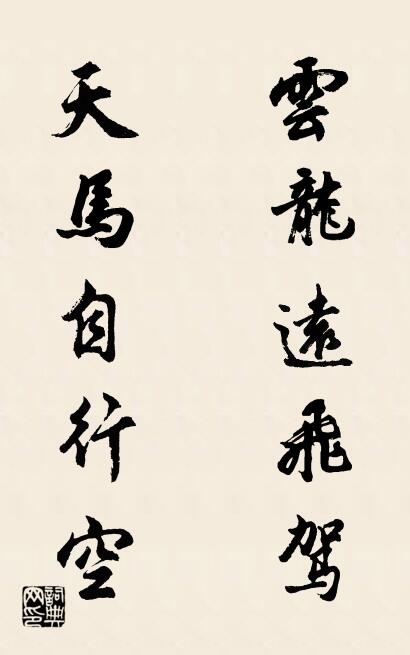 雲龍遠飛駕
天馬自行空
詞典网印